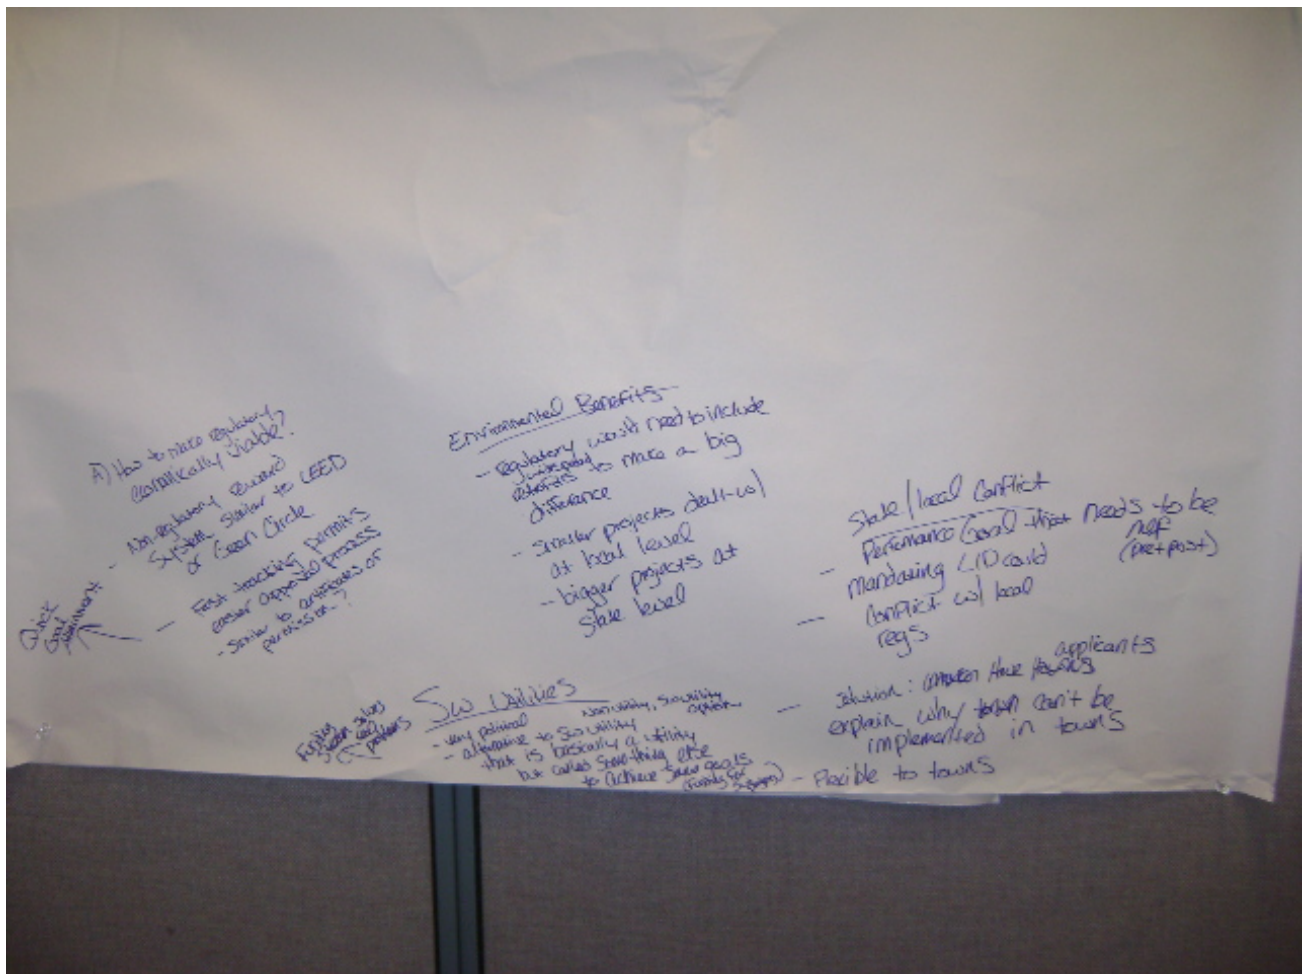 A) How to make regulatory
economically viable?
- Non-regulatory reward
System similar to LEED
or Green Circle
- Fast tracking permits
easier approval process
- Similar to certificates of
permission?
Quick
Goal
Environmental Benefits
- regulatory would need to include
to make a big
difference
- Smaller projects dealt w/
at local level
- bigger projects at
State level
State/local Conflict
- Performance Goal that needs to be
met
(pre + post)
- mandating LID could
Conflict w/ local
regs
- Solution: have
applicants
explain why can't be
implemented in towns
- Flexible to towns
SW Utilities
- very political
- alternative to SW utility
that is basically a utility
but called something else
to achieve same goals
Non utility, SW utility
option
Funding
solves
problems